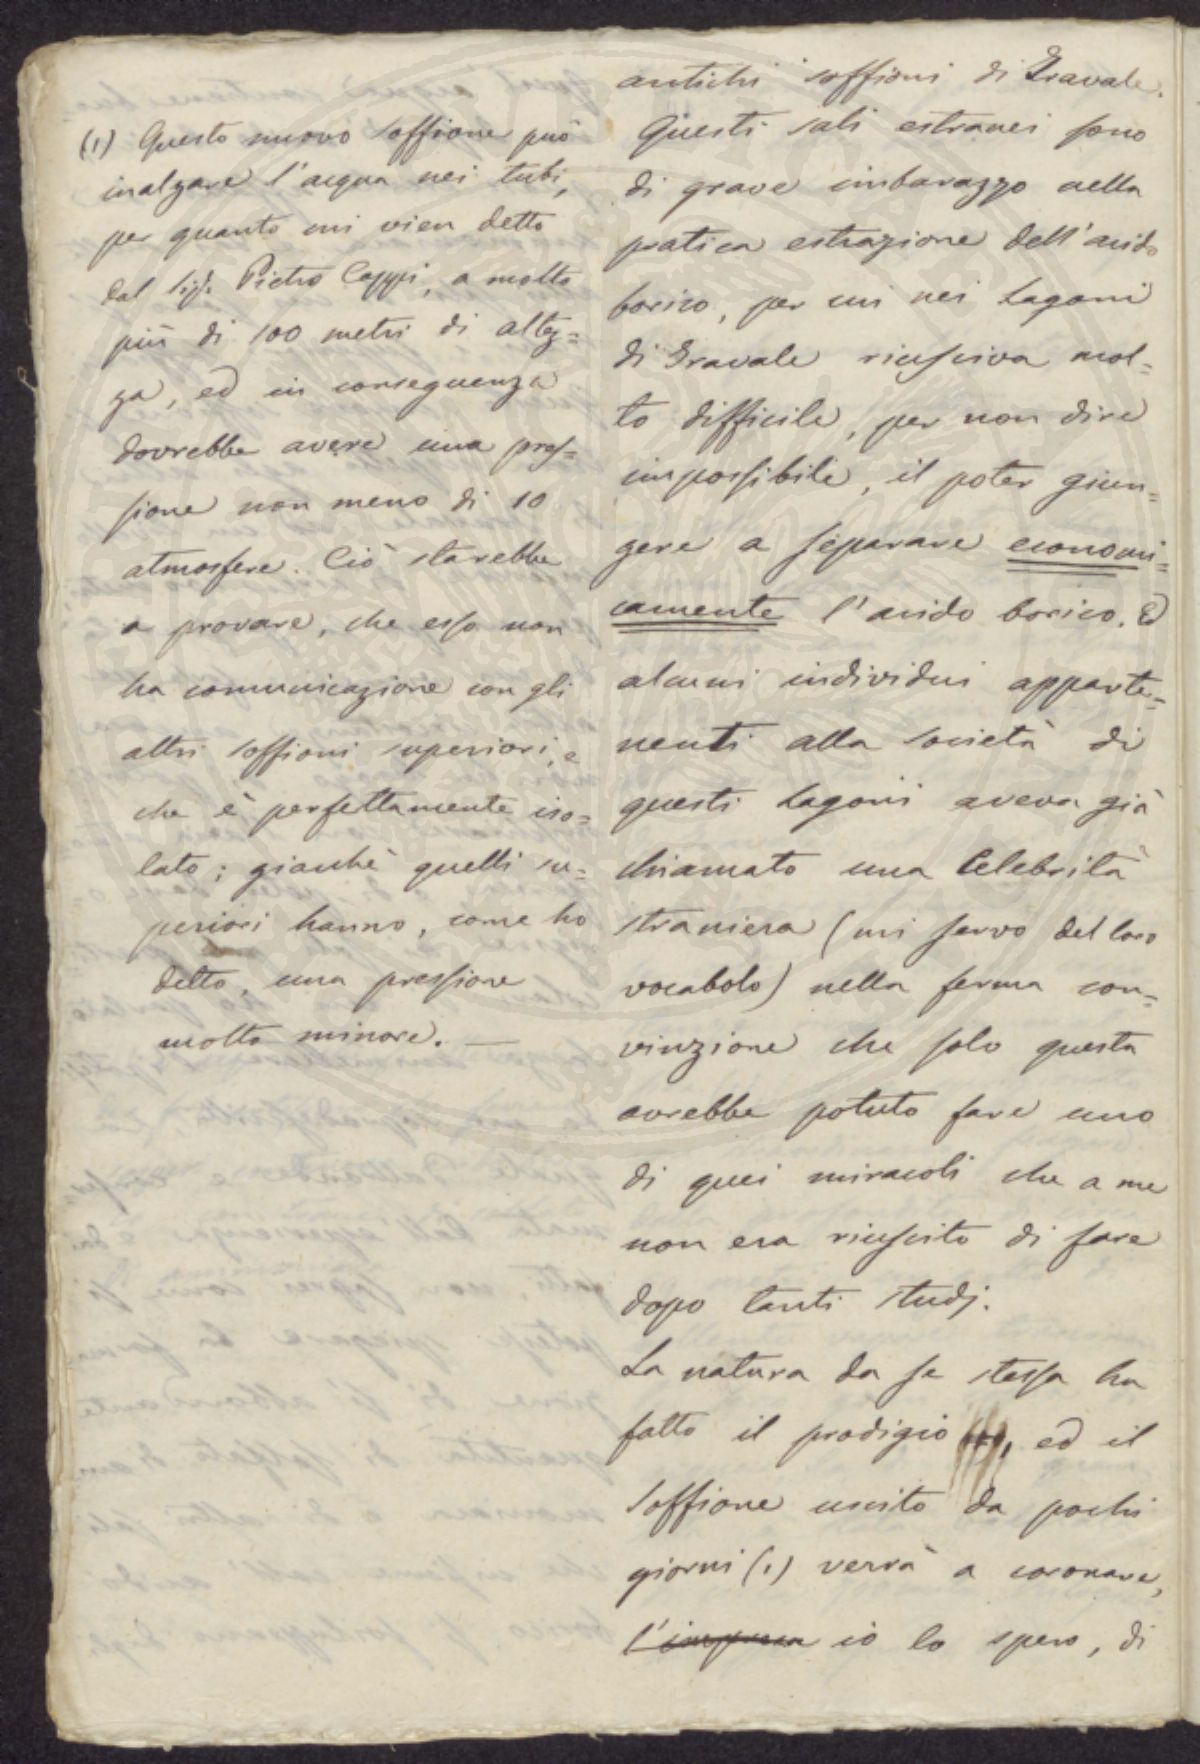 antichi soffioni di Travale.
Questi sali estranei sono
di grave imbarazzo nella
pratica estrazione dell'acido
borico, per cui nei Lagoni
di Travale riusciva mol=
to difficile, per non dire
impossibile, il poter giun=
gere a separare economi=
camente l'acido borico. Ed
alcuni individui apparte=
nenti alla società di
questi Lagoni aveva già
chiamato una Celebrità
straniera (mi servo del loro
vocabolo) nella ferma con=
vinzione che solo questa
avrebbe potuto fare uno
di quei miracoli che a me
non era riuscito di fare
dopo tanti studj.
La natura da se stessa ha
fatto il prodigio, ed il
Soffione uscito da pochi
giorni (1) verrà a coronare,
l'impresa io lo spero, di
(1) Questo nuovo Soffione può
inalzare l'acqua nei tubi,
per quanto mi vien detto
dal Sig. Pietro Coppi, a molto
più di 100 metri di altez=
za, ed in conseguenza
dovrebbe avere una pres=
sione non meno di 10
atmosfere. Ciò starebbe
a provare, che esso non
ha comunicazione con gli
altri Soffioni superiori, e
che è perfettamente iso=
lato; giacchè quelli su=
periori hanno, come ho
detto, una pressione
molto minore. —